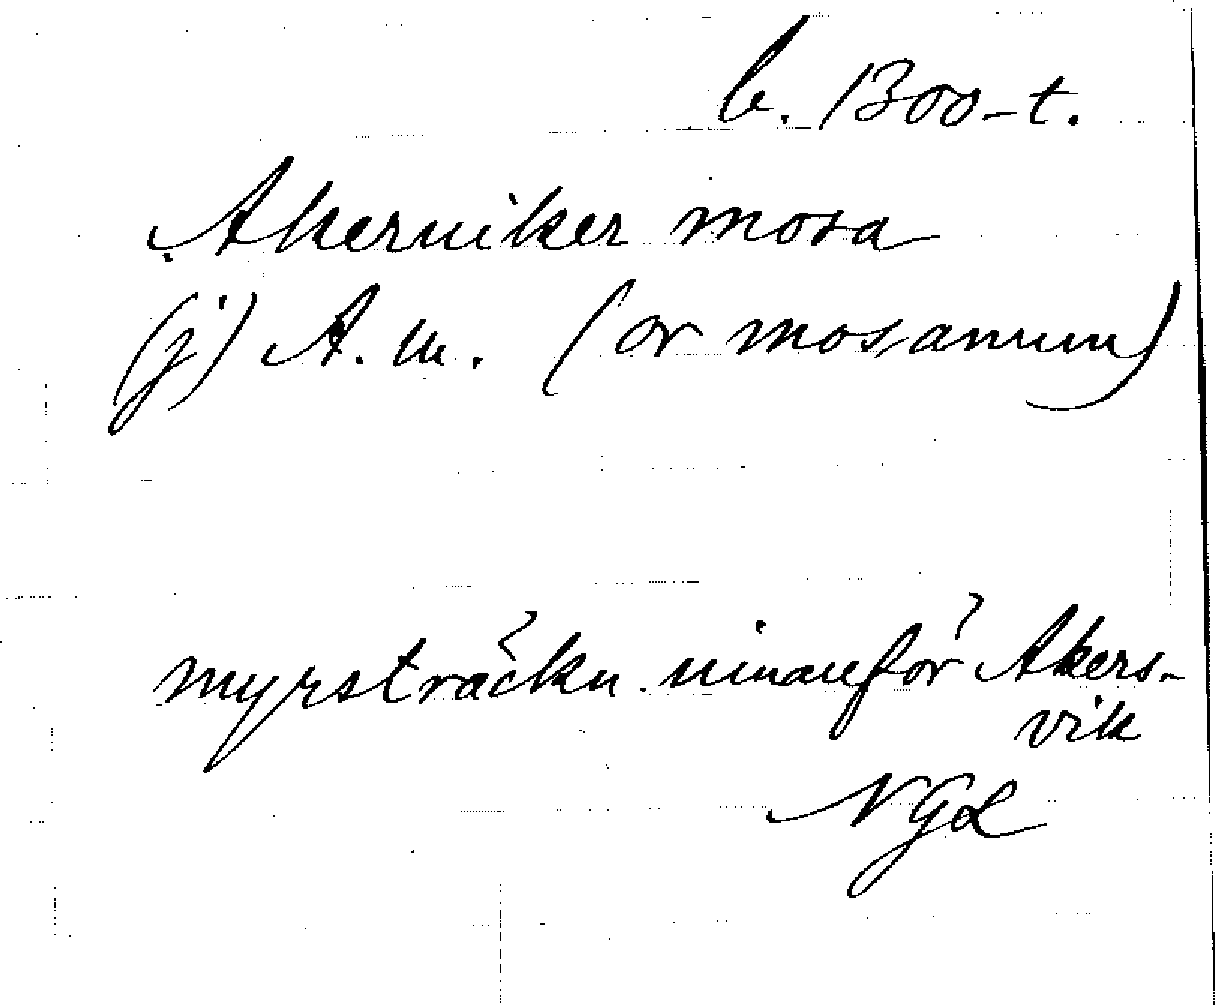 b. 1300-t.
Akerviker mosa
(j) A. m. (or mosanum)
myrsträckn. innanför Akers-
vik
NGL